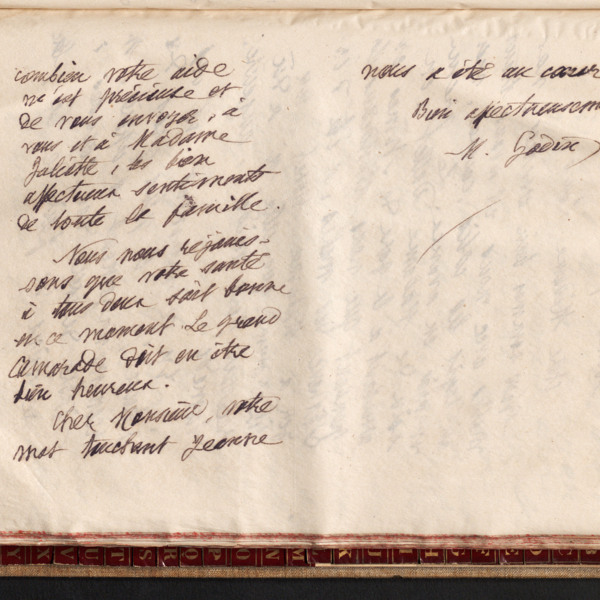 combien votre aide
m'est précieuse et
de vous envoyer, à
vous et à Madame
Juliette, les bien
affectueux sentiments
de toute la famille.
Nous nous réjouis-
sons que votre santé
à tous deux soit bonne
en ce moment. Le grand
camarade doit en être
bien heureux.
Cher Monsieur, votre
mot touchant Jeanne
nous a été au coeur
Bien affectueusem
M.